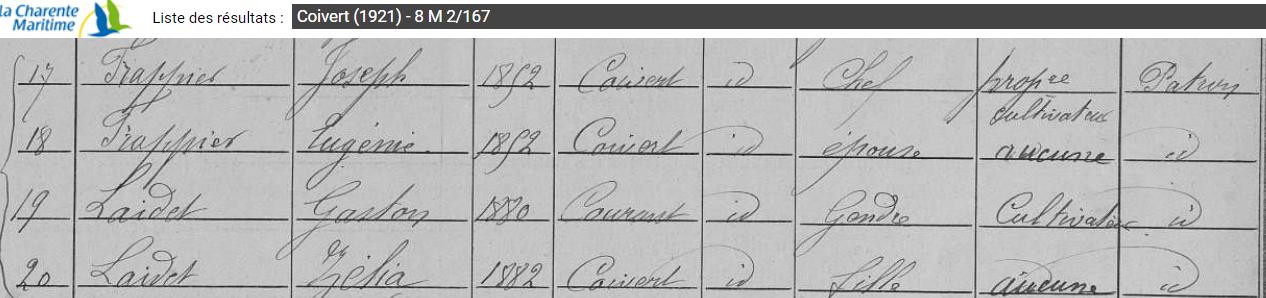 la Charente
Maritime
Liste des résultats : Coivert (1921) - 8 M 2/167
17 Trappier Joseph 1852 Coivert id Chef propre Patron
cultivateur
18 Trappier Eugénie 1852 Coivert id épouse aucune id
19 Laidet Gaston 1880 Courant id Gendre Cultivateur id
20 Laidet Zélia 1882 Coivert id fille aucune id